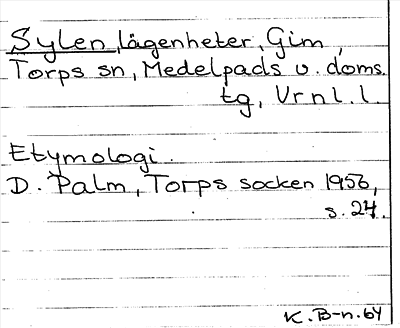 Sylen, lägenheter, Gim,
Torps sn, Medelpads v. doms.
tg, Vrnl. l.
Etymologi.
D. Palm, Torps socken 1956,
s. 24.
K. B-n. 64